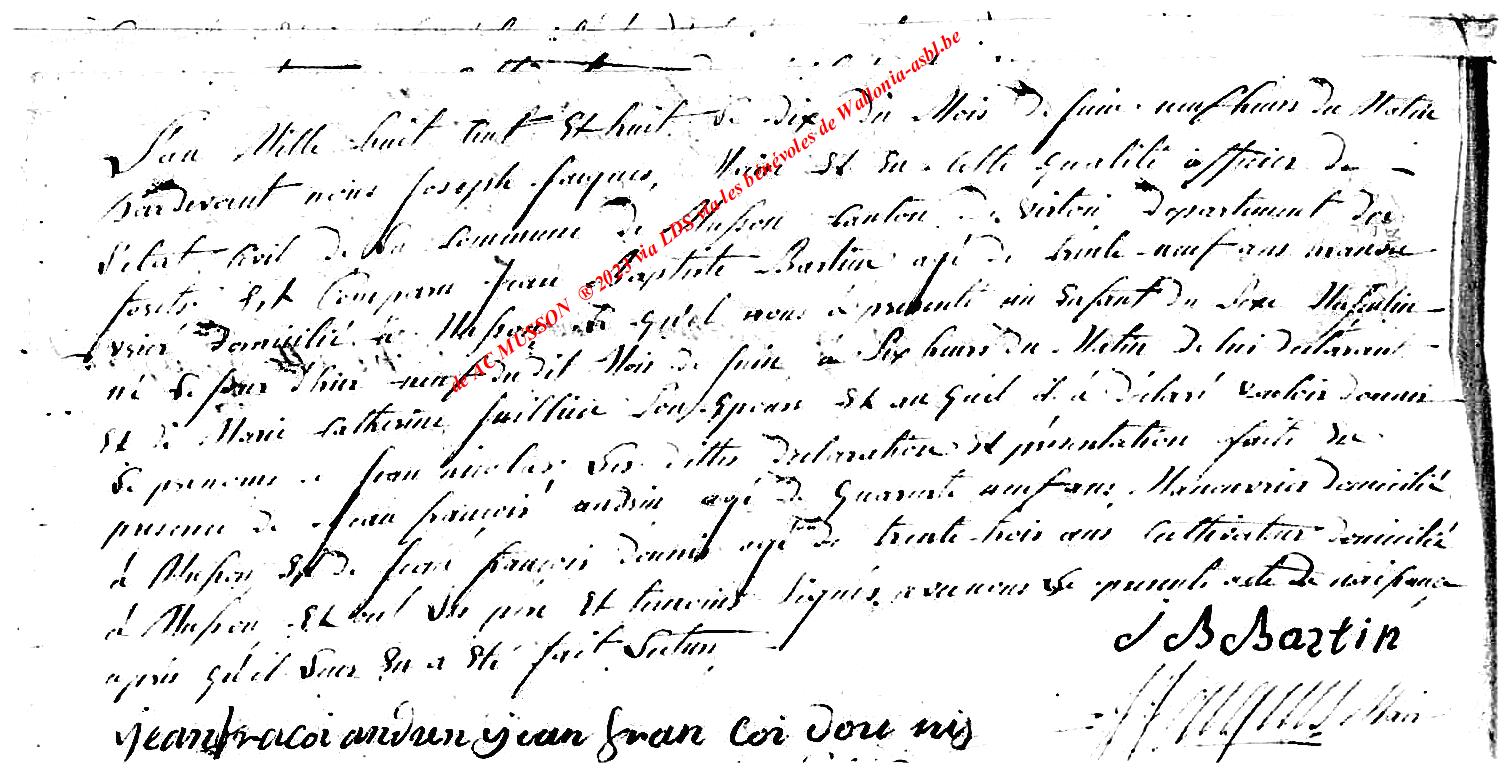 L'an Mille huit Cent Et huit Le dix du Mois De juin neuf heurs du Matin
Pardevant nous joseph jacques, Maire Et En Cette qualité officier de
L'Etat Civil de La Commune de Musson Canton de virton département des
forets Est Comparu jean Baptiste Bartin agé de trente neuf ans manou
vrié domicilié à Musson qu'el nous à présenté un Enfant du Sexe Masculin
né Le jour d'hier neuf dudit Mois de juin à Six heurs du Matin de lui déclarant
Et de Marie Catherine Son Epouse Et au quel il à déclaré vouloir donner
Le prenoms de jean nicolas, Les dittes declaration Et présentation faite en
presence de jean françois andrin agé de quarante neuf ans Manouvrier domicilié
à Musson Et de jean françois agé de trente trois ans Cultivateur domicilié
à Musson Et ont Les pere Et temoins Signés avec nous Le present acte de naissance
après qu'il Leur En a Eté fait Lecture
J B Bartin
jean fracoi andren jean fran coi dou nis
Jacques Maire
de AC MUSSON ® 2023 via LDS via les bénévoles de Wallonia-asbl.be